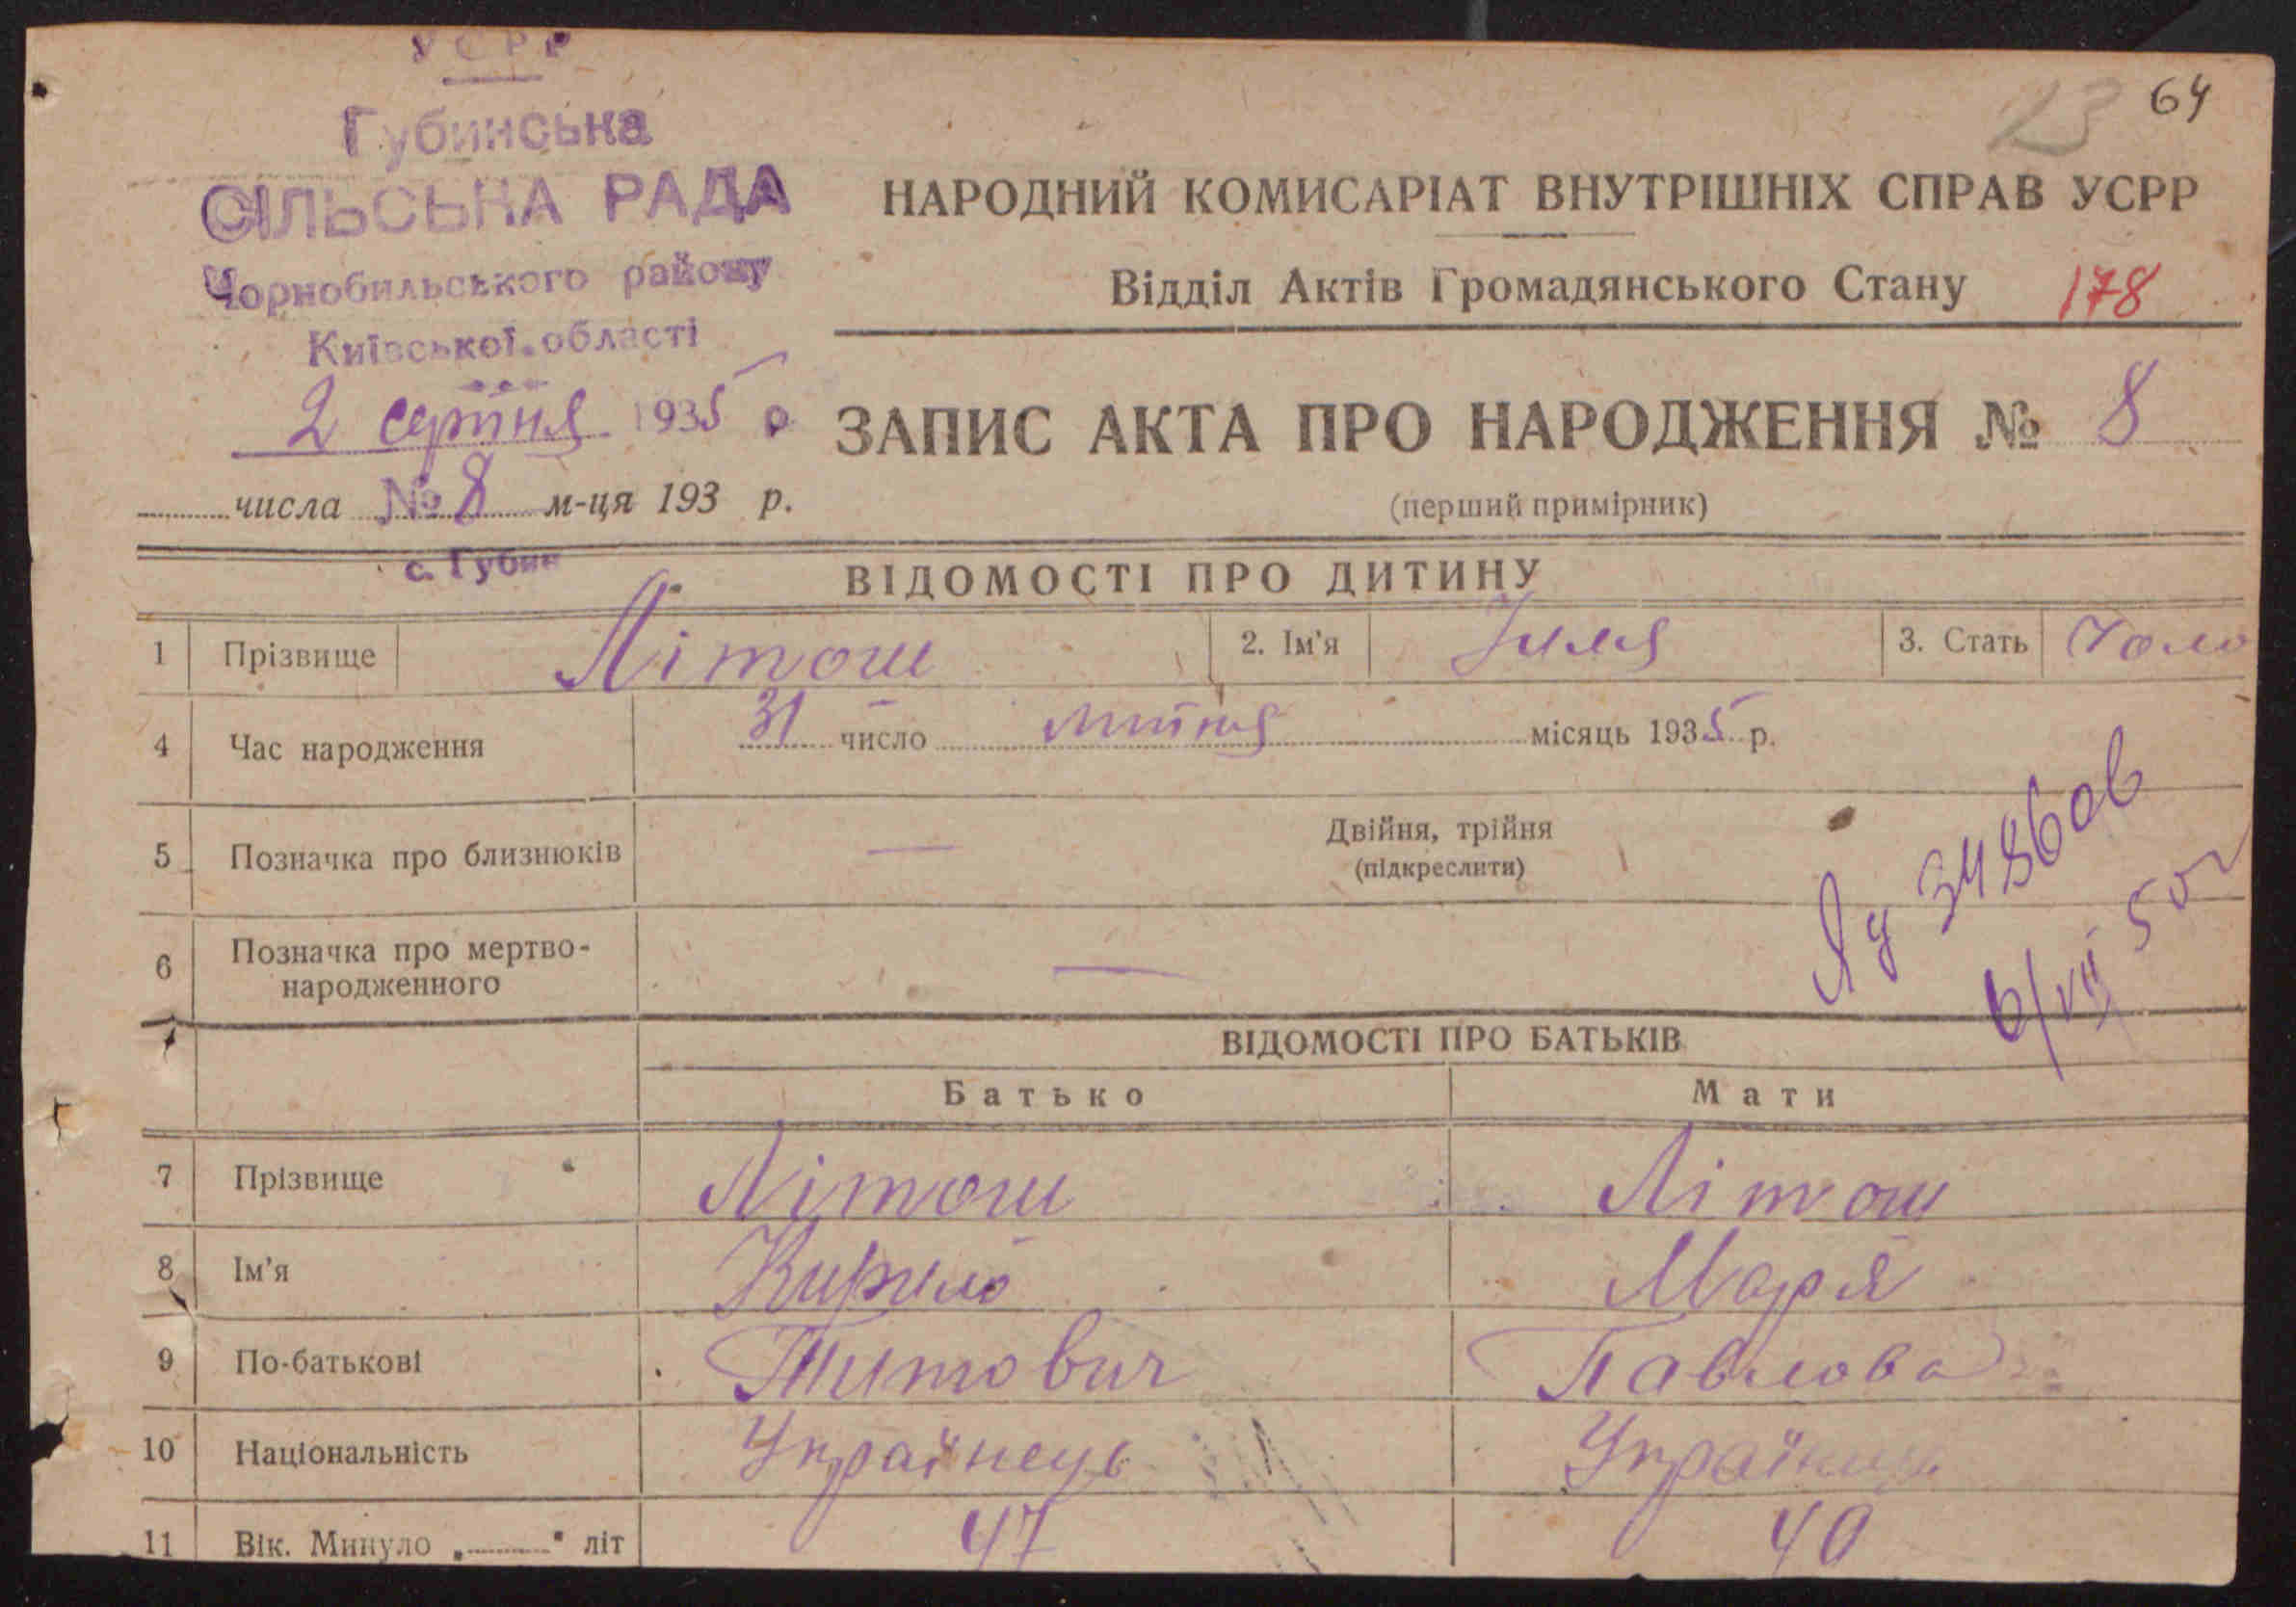 УСРР
Губинська
СІЛЬСЬКА РАДА
Чорнобильського району
Київської області
2 серпня 1935 р.
числа № 8 м-ця 193 р.
с. Губин
23 64
НАРОДНИЙ КОМИСАРІАТ ВНУТРІШНІХ СПРАВ УСРР
Відділ Актів Громадянського Стану 178
ЗАПИС АКТА ПРО НАРОДЖЕННЯ № 8
(перший примірник)
ВІДОМОСТІ ПРО ДИТИНУ
1 Прізвище Літош 2. Ім'я Ілля 3. Стать Чоло
4 Час народження 31 число липня місяць 1935 р.
5 Позначка про близнюків — Двійня, трійня
(підкреслити)
6 Позначка про мертво-
народженного —
6/VII 50
ВІДОМОСТІ ПРО БАТЬКІВ
Батько Мати
7 Прізвище Літош Літош
8 Ім'я Кирило Марія
9 По-батькові Титович Павлова
10 Національність Українець Українка
11 Вік. Минуло „ " літ 47 40